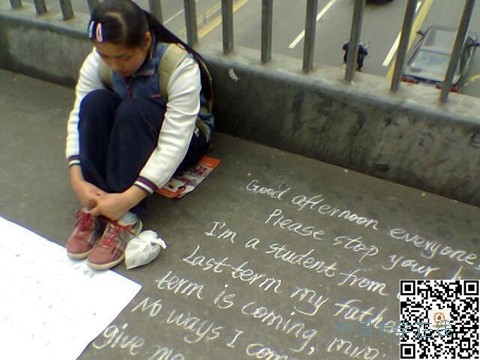 Good afternoon everyone
Please stop your
I'm a student from
Last term my fath
term is coming,
No ways I com
give me